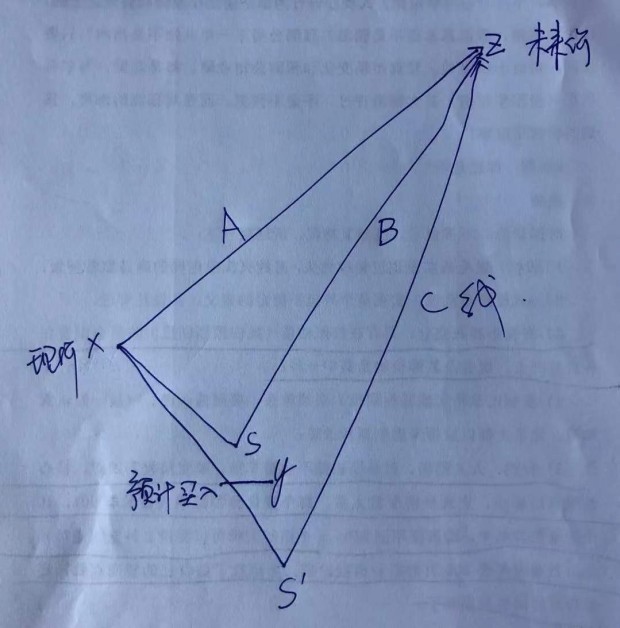 Z 未来价
A
B
C线
现价 X
S
预计买入 y
S'